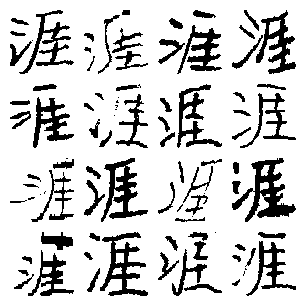 涯涯涯涯
涯涯涯涯
涯涯涯涯
涯涯涯涯